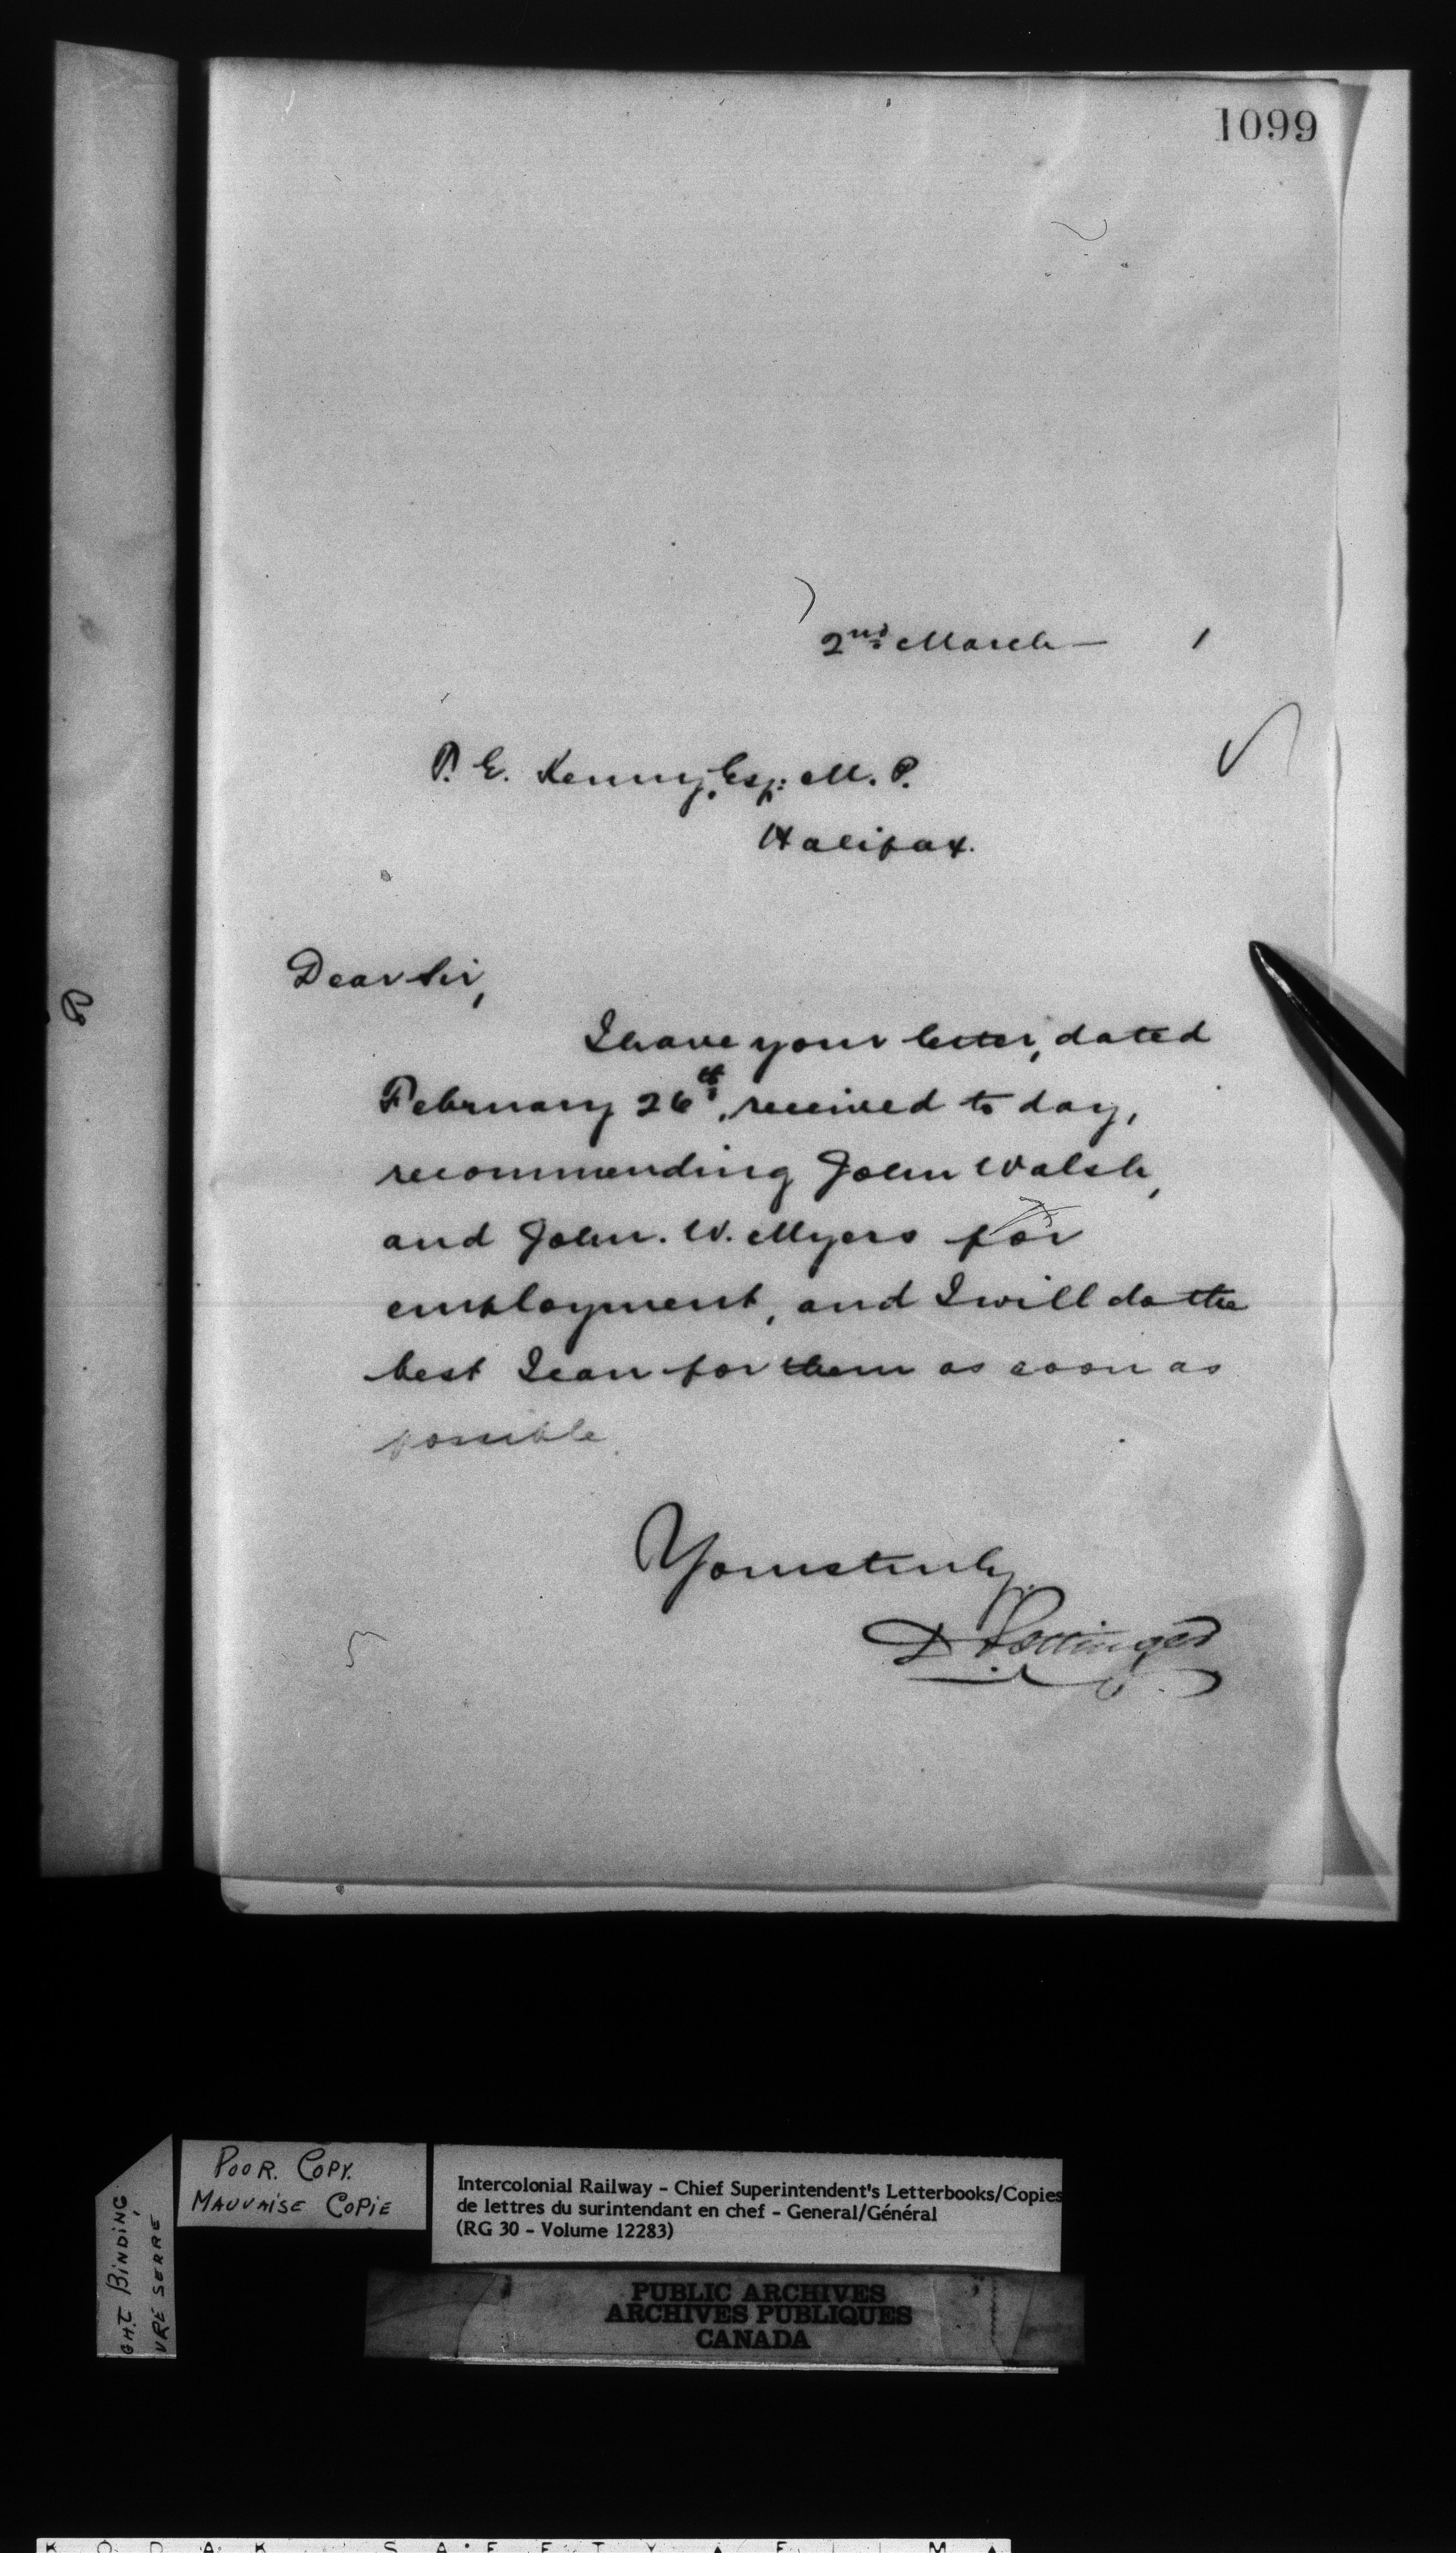 1099
2nd March — 1
P. E. Kenny, Esq: M. P.
Halifax.
Dear Sir,
I have your letter, dated
February 26th, received to day,
recommending John Walsh,
and John. W. Myers for
employment, and I will do the
best I can for them as soon as
possible.
Yours truly,
D Pottinger
POOR. COPY.
MAUVAISE COPIE
GHT BINDING
VRE SERRE
Intercolonial Railway - Chief Superintendent's Letterbooks/Copies
de lettres du surintendant en chef - General/Général
(RG 30 - Volume 12283)
PUBLIC ARCHIVES
ARCHIVES PUBLIQUES
CANADA
KODAK SAFETY FILM